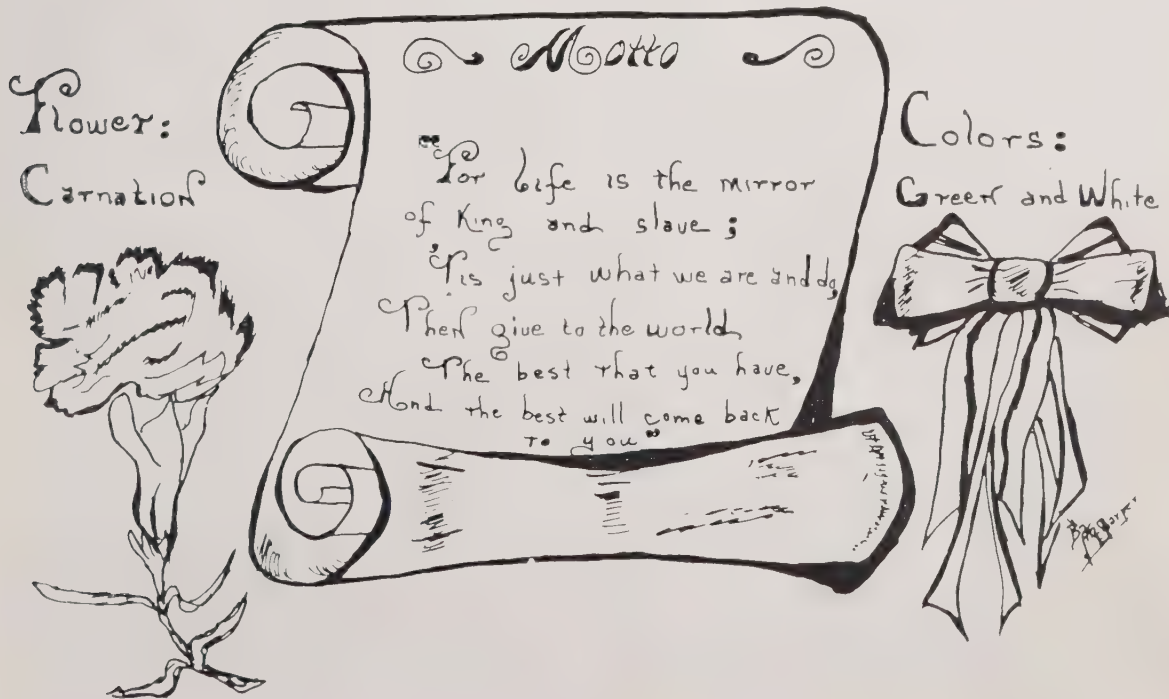 Flower:
Carnation
Motto
"For Life is the mirror
of King and slave;
'Tis just what we are and do,
Then give to the world
The best that you have,
And the best will come back
to you"
Colors:
Green and White